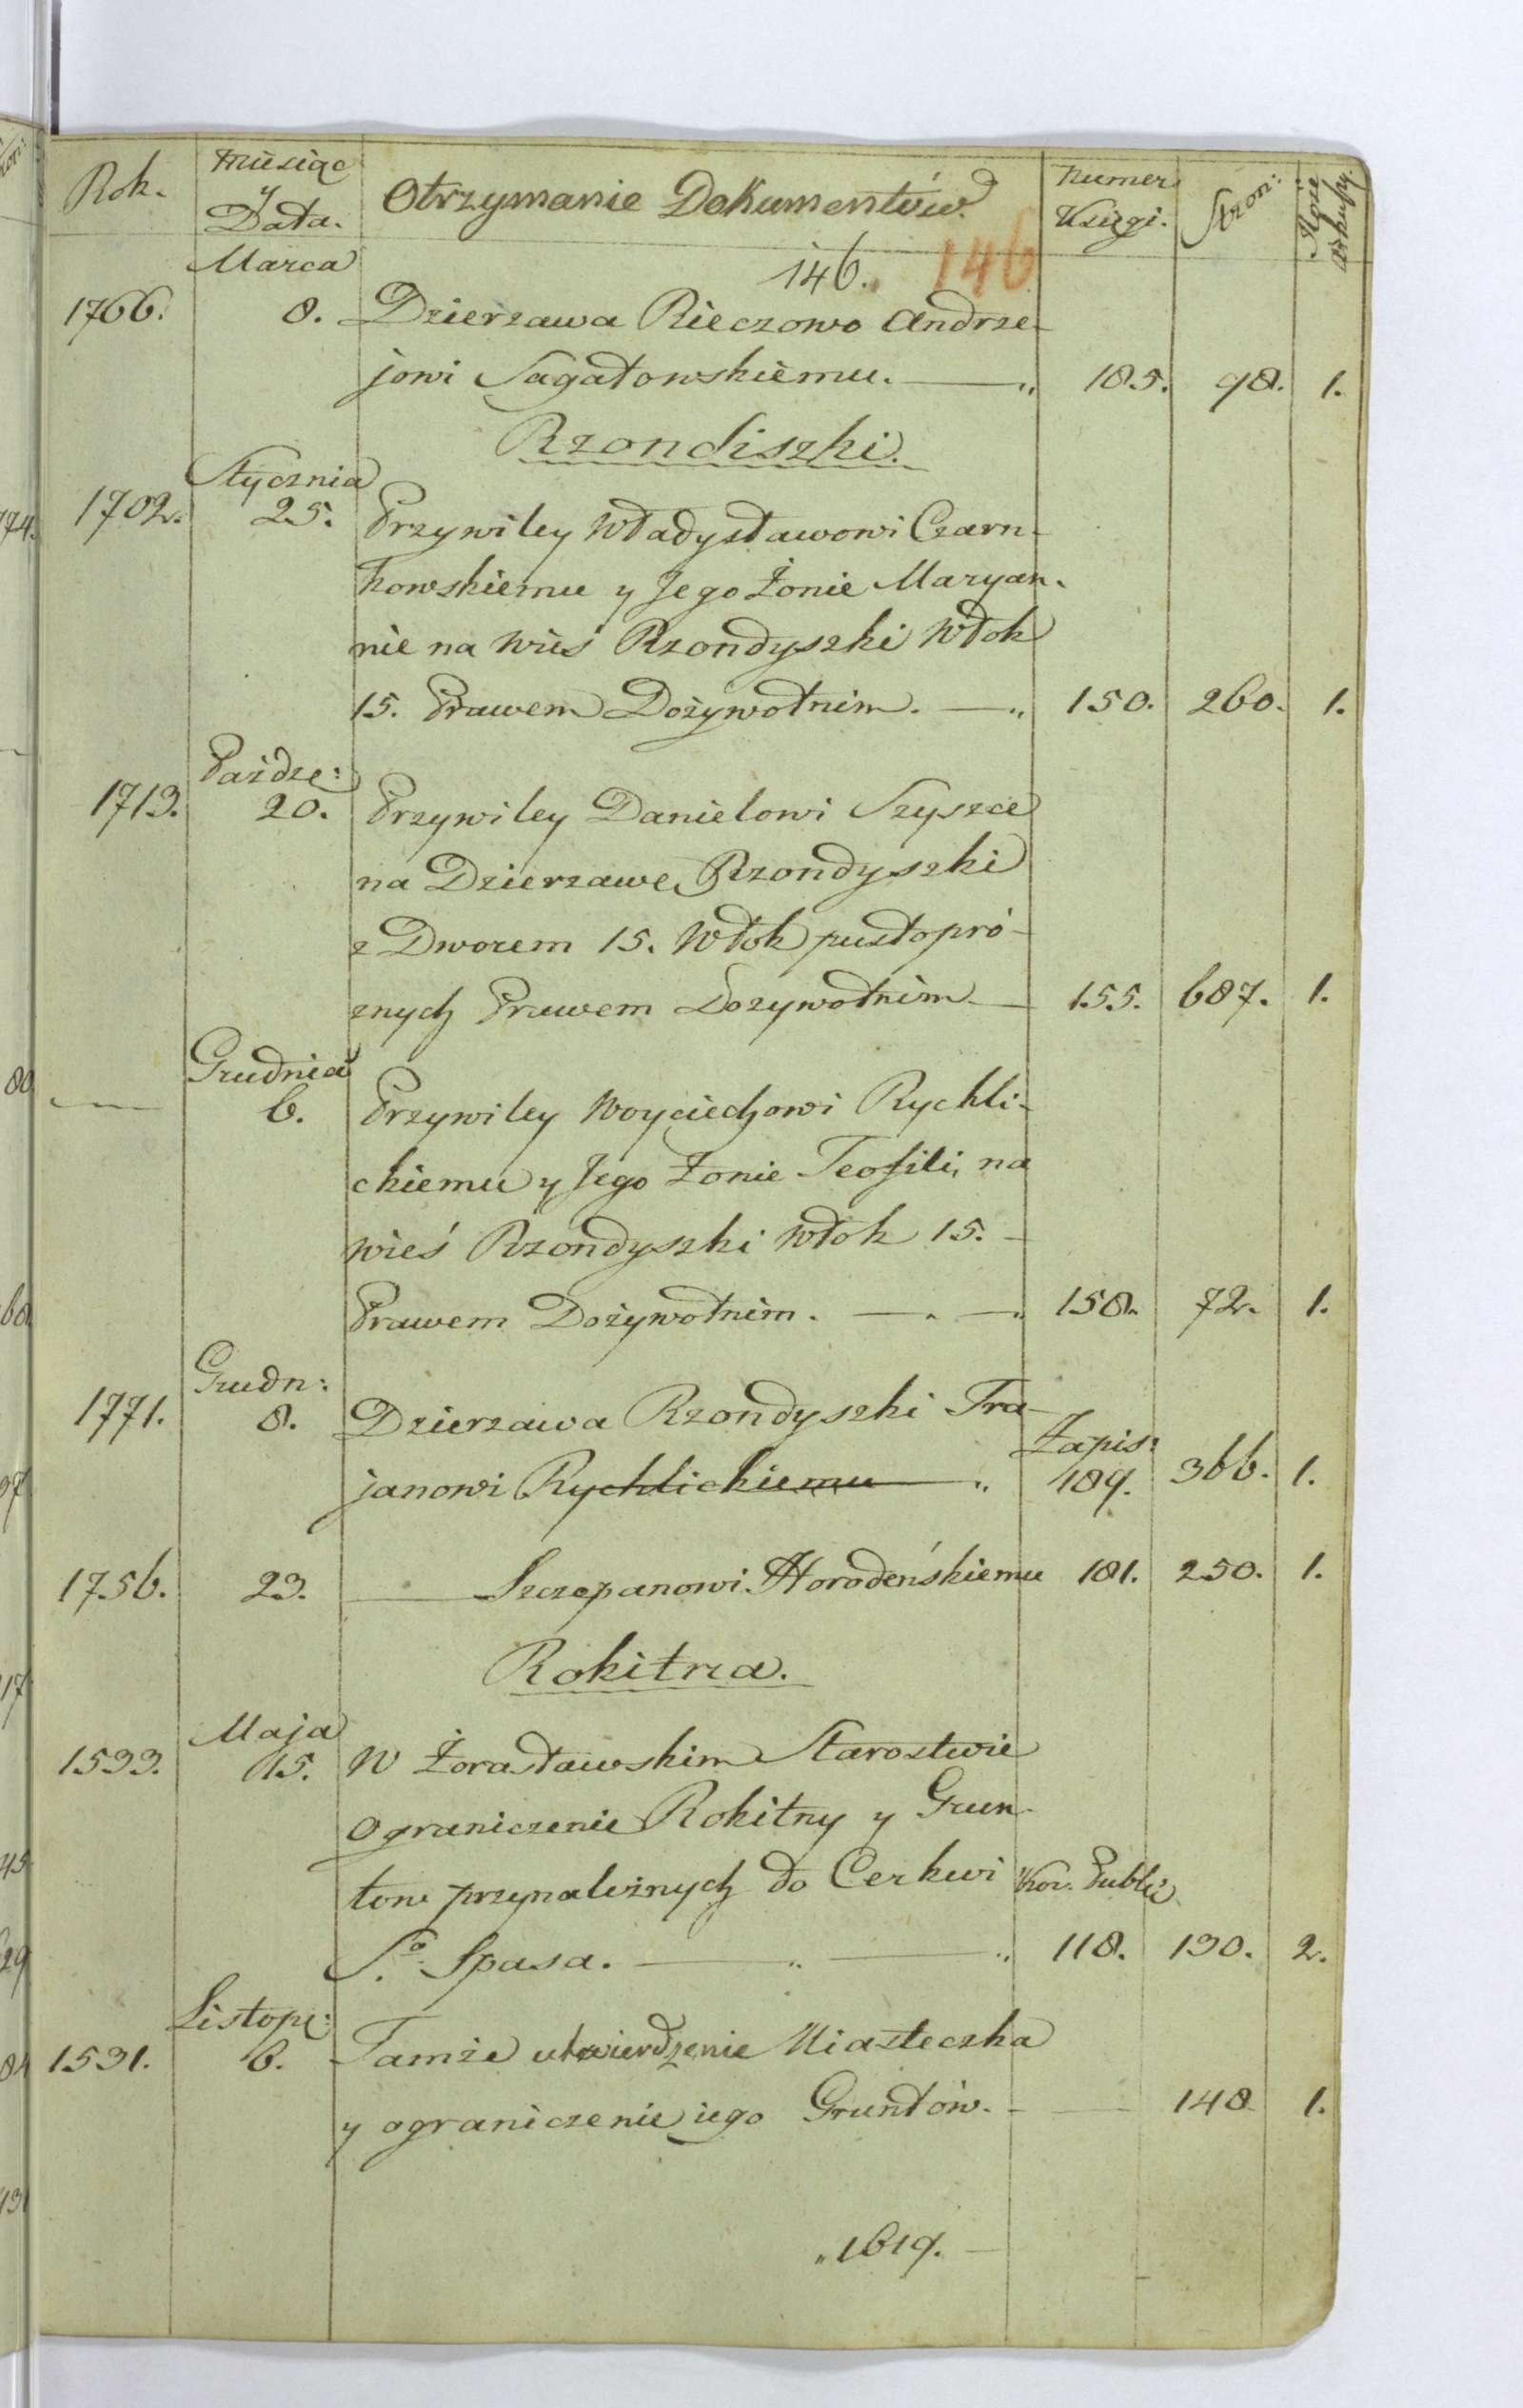 Rok. Miesiąc y Data. Otrzymanie Dokumentów. Numer Księgi. Stron:
146. 146
Marca
1766. 8. Dzierzawa Rieczowo Andrze-
jowi Sagatowskiemu. — 185. 98. 1.
Rzondiszki.
Stycznia
1702. 25. Przywiley Władysławowi Czarn-
kowskiemu y Jego Żonie Maryan-
nie na Wieś Rzondyszki Włok
15. Prawem Dożywotnim. — 150. 260. 1.
Paźdze:
1713. 20. Przywiley Danielowi Szyszce
na Dzierzawę Rzondyszki
z Dworem 15. Włok pustopró-
znych Prawem Dozywotnim — 155. 687. 1.
Grudnia
— 6. Przywiley Woyciechowi Rychli-
ckiemu y Jego Żonie Teofili, na
wieś Rzondyszki Włok 15. -
Prawem Dożywotnim. — . — 158. 72. 1.
Grudn:
1771. 8. Dzierzawa Rzondyszki Tra-
Zapis:
janowi Rychlickiemu 189. 366. 1.
1756. 23. — Szczepanowi Horodeńskiemu 181. 250. 1.
Rokitna.
Maja
1533. 15. W Żorasławskim Starostwie
Ograniczenie Rokitny y Grun-
tow przynależnych do Cerkwi Xor. Public
Sº. Spasa. — — 118. 130. 2.
Listopa:
1531. 6. Tamże utwierdzenie Miasteczka
y ograniczenie iego Gruntów. - — 148 1.
1619. —